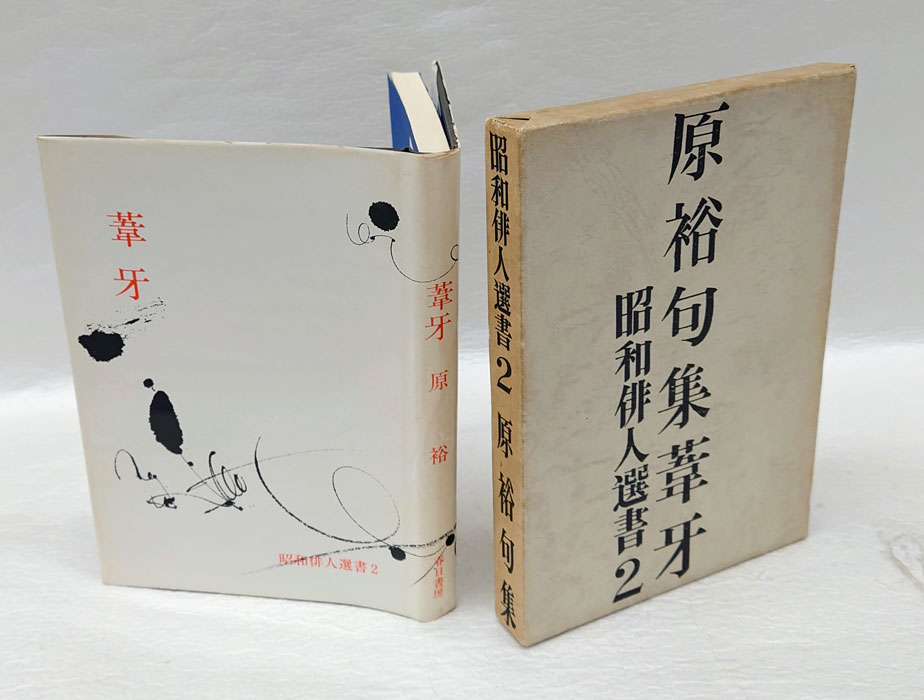 葦牙
昭和俳人選書2
葦牙 原 裕
春日書房
昭和俳人選書2 原裕句集
原裕句集葦牙
昭和俳人選書2